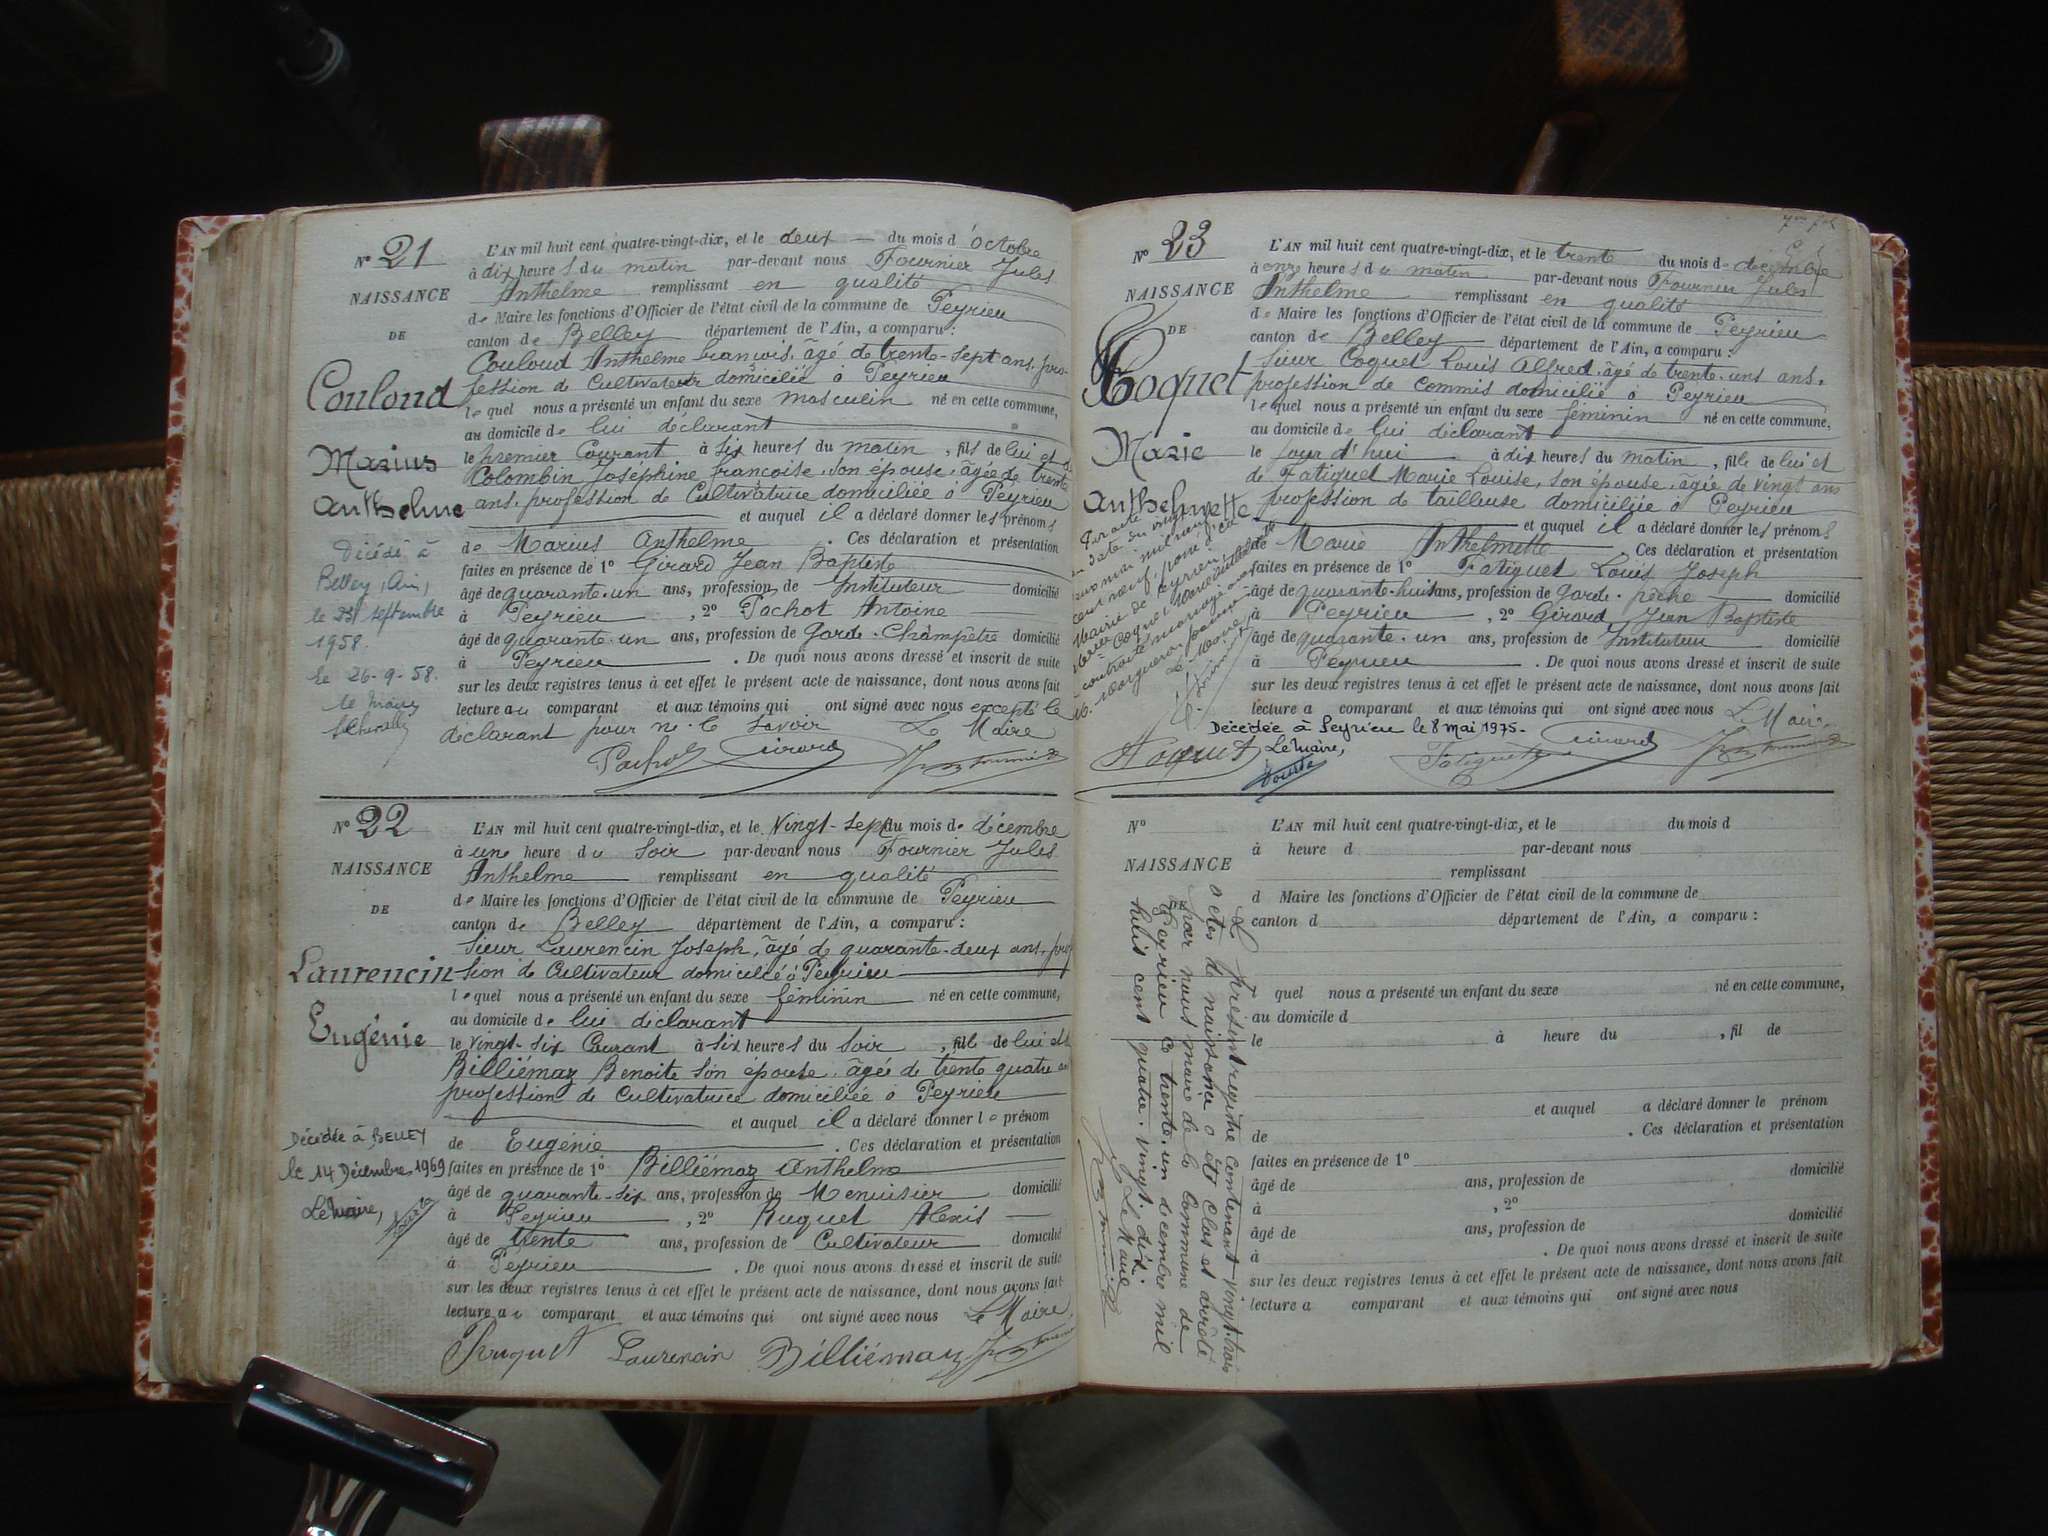 N° 21
NAISSANCE
DE
Couloud
Marius
Anthelme
Décédé à
Belley, Ain,
le septembre
1958.
le 26-9-58.
le maire
L'AN mil huit cent quatre-vingt-dix, et le deux du mois d'octobre
à dix heures du matin par-devant nous Fournier Jules
Anthelme remplissant en qualité
de Maire les fonctions d'Officier de l'état civil de la commune de Peyrieu
canton de Belley département de l'Ain, a comparu :
Couloud Anthelme François, âgé de trente-sept ans, pro-
fession de Cultivateur domicilié à Peyrieu
lequel nous a présenté un enfant du sexe masculin né en cette commune,
au domicile de lui déclarant
le premier Courant à six heures du matin, fils de lui et de
Colombin Joséphine Françoise, son épouse, âgée de trente
ans, profession de Cultivatrice domiciliée à Peyrieu
et auquel il a déclaré donner les prénoms
de Marius Anthelme. Ces déclaration et présentation
faites en présence de 1° Girard Jean Baptiste
âgé de quarante-un ans, profession de Instituteur domicilié
à Peyrieu, 2° Pochot Antoine
âgé de quarante-un ans, profession de Garde-Champetre domicilié
à Peyrieu. De quoi nous avons dressé et inscrit de suite
sur les deux registres tenus à cet effet le présent acte de naissance, dont nous avons fait
lecture au comparant et aux témoins qui ont signé avec nous excepté le
déclarant pour ne le savoir Le Maire
Pochot Girard Fournier
N° 22
NAISSANCE
DE
Laurencin
Eugénie
Décédée à BELLEY
le 14 Décembre 1969
Le Maire,
L'AN mil huit cent quatre-vingt-dix, et le vingt-sept du mois de décembre
à une heure du soir par-devant nous Fournier Jules
Anthelme remplissant en qualité
de Maire les fonctions d'Officier de l'état civil de la commune de Peyrieu
canton de Belley département de l'Ain, a comparu :
Sieur Laurencin Joseph, âgé de quarante-deux ans, profes
sion de Cultivateur domicilié à Peyrieu
lequel nous a présenté un enfant du sexe féminin né en cette commune,
au domicile de lui déclarant
le vingt-six Courant à six heures du soir, fille de lui et de
Billiémaz Benoite son épouse, âgée de trente quatre ans
profession de Cultivatrice domiciliée à Peyrieu
et auquel il a déclaré donner le prénom
de Eugénie. Ces déclaration et présentation
faites en présence de 1° Billiémaz Anthelme
âgé de quarante-six ans, profession de Menuisier domicilié
à Peyrieu, 2° Ruguet Alexis
âgé de trente ans, profession de Cultivateur domicilié
à Peyrieu. De quoi nous avons dressé et inscrit de suite
sur les deux registres tenus à cet effet le présent acte de naissance, dont nous avons fait
lecture au comparant et aux témoins qui ont signé avec nous Le Maire
Ruguet Laurencin Billiémaz Fournier
N° 23
NAISSANCE
DE
Coquet
Marie
Anthelmette
L'AN mil huit cent quatre-vingt-dix, et le trente du mois de décembre
à onze heures du matin par-devant nous Fournier Jules
Anthelme remplissant en qualité
de Maire les fonctions d'Officier de l'état civil de la commune de Peyrieu
canton de Belley département de l'Ain, a comparu :
Sieur Coquet Louis Alfred, âgé de trente-uns ans,
profession de Commis domicilié à Peyrieu
lequel nous a présenté un enfant du sexe féminin né en cette commune,
au domicile de lui déclarant
le jour d'hui à dix heures du matin, fille de lui et
de Fatiguet Marie Louise, son épouse, agée de vingt ans
profession de tailleuse domiciliée à Peyrieu
et auquel il a déclaré donner les prénoms
de Marie Anthelmette. Ces déclaration et présentation
faites en présence de 1° Fatiguet Louis Joseph
âgé de quarante-huit ans, profession de garde-pêche domicilié
à Peyrieu, 2° Girard Jean Baptiste
âgé de quarante-un ans, profession de Instituteur domicilié
à Peyrieu. De quoi nous avons dressé et inscrit de suite
sur les deux registres tenus à cet effet le présent acte de naissance, dont nous avons fait
lecture a comparant et aux témoins qui ont signé avec nous Le Maire
Décédée à Peyrieu le 8 mai 1975.
Le Maire,
Coquet Fatiguet Girard Fournier
N°
NAISSANCE
L'AN mil huit cent quatre-vingt-dix, et le du mois d
à heure d par-devant nous
remplissant
d Maire les fonctions d'Officier de l'état civil de la commune de
canton d département de l'Ain, a comparu :
quel nous a présenté un enfant du sexe né en cette commune,
au domicile d
le à heure du , fil de
et auquel a déclaré donner le prénom
de . Ces déclaration et présentation
faites en présence de 1°
âgé de ans, profession de domicilié
à , 2°
âgé de ans, profession de domicilié
à . De quoi nous avons dressé et inscrit de suite
sur les deux registres tenus à cet effet le présent acte de naissance, dont nous avons fait
lecture a comparant et aux témoins qui ont signé avec nous
Le présent registre contenant vingt-trois
actes de naissance a été clos et arrêté
par nous maire de la Commune de
Peyrieu ce trente-un decembre mil
huit cent quatre-vingt-dix.
Le Maire
Fournier